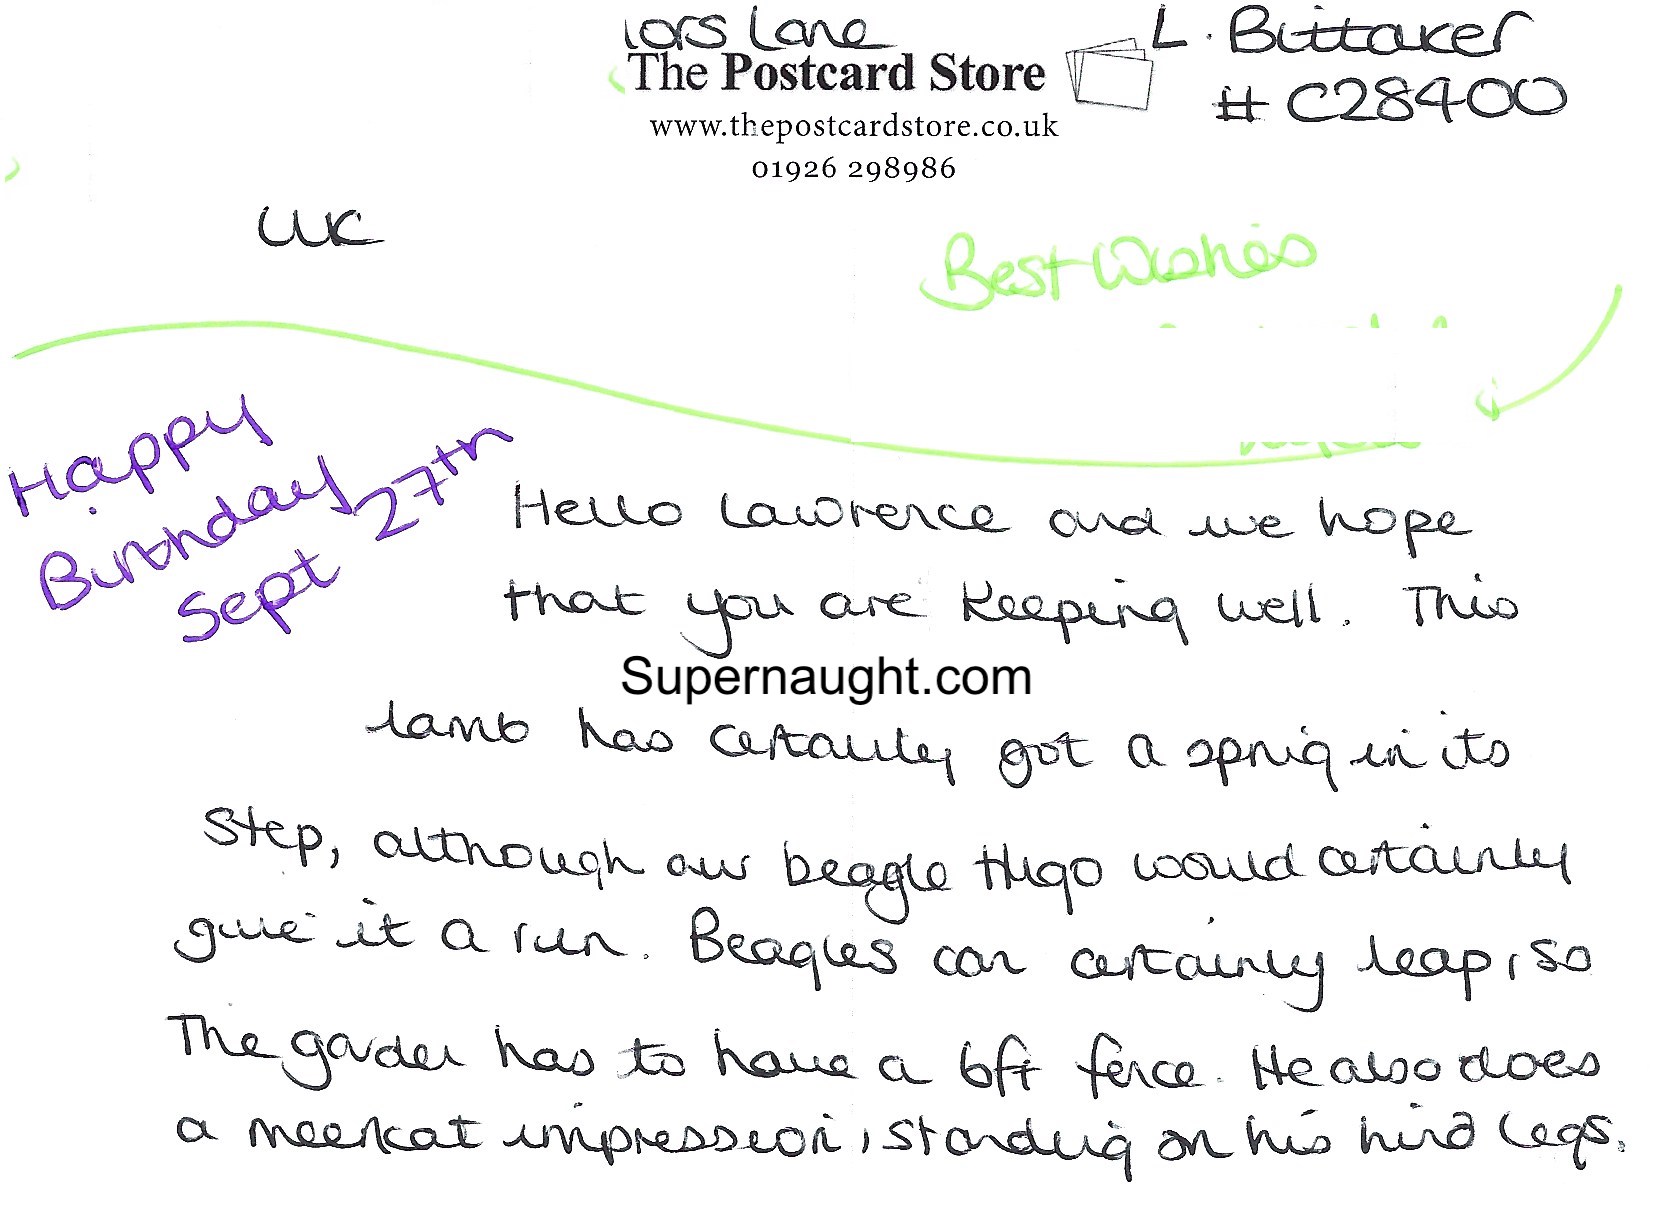 iors Lane
L. Bittaker
The Postcard Store
# C28400
www.thepostcardstore.co.uk
01926 298986
UK
Best Wishes
Happy
Birthday
Sept 27th
Hello Lawrence and we hope
that you are keeping well. This
Supernaught.com
lamb has certainly got a sprig in its
step, although our beagle Hugo would certainly
give it a run. Beagles can certainly leap, so
The garden has to have a 6ft fence. He also does
a meerkat impression, standing on his hind legs.